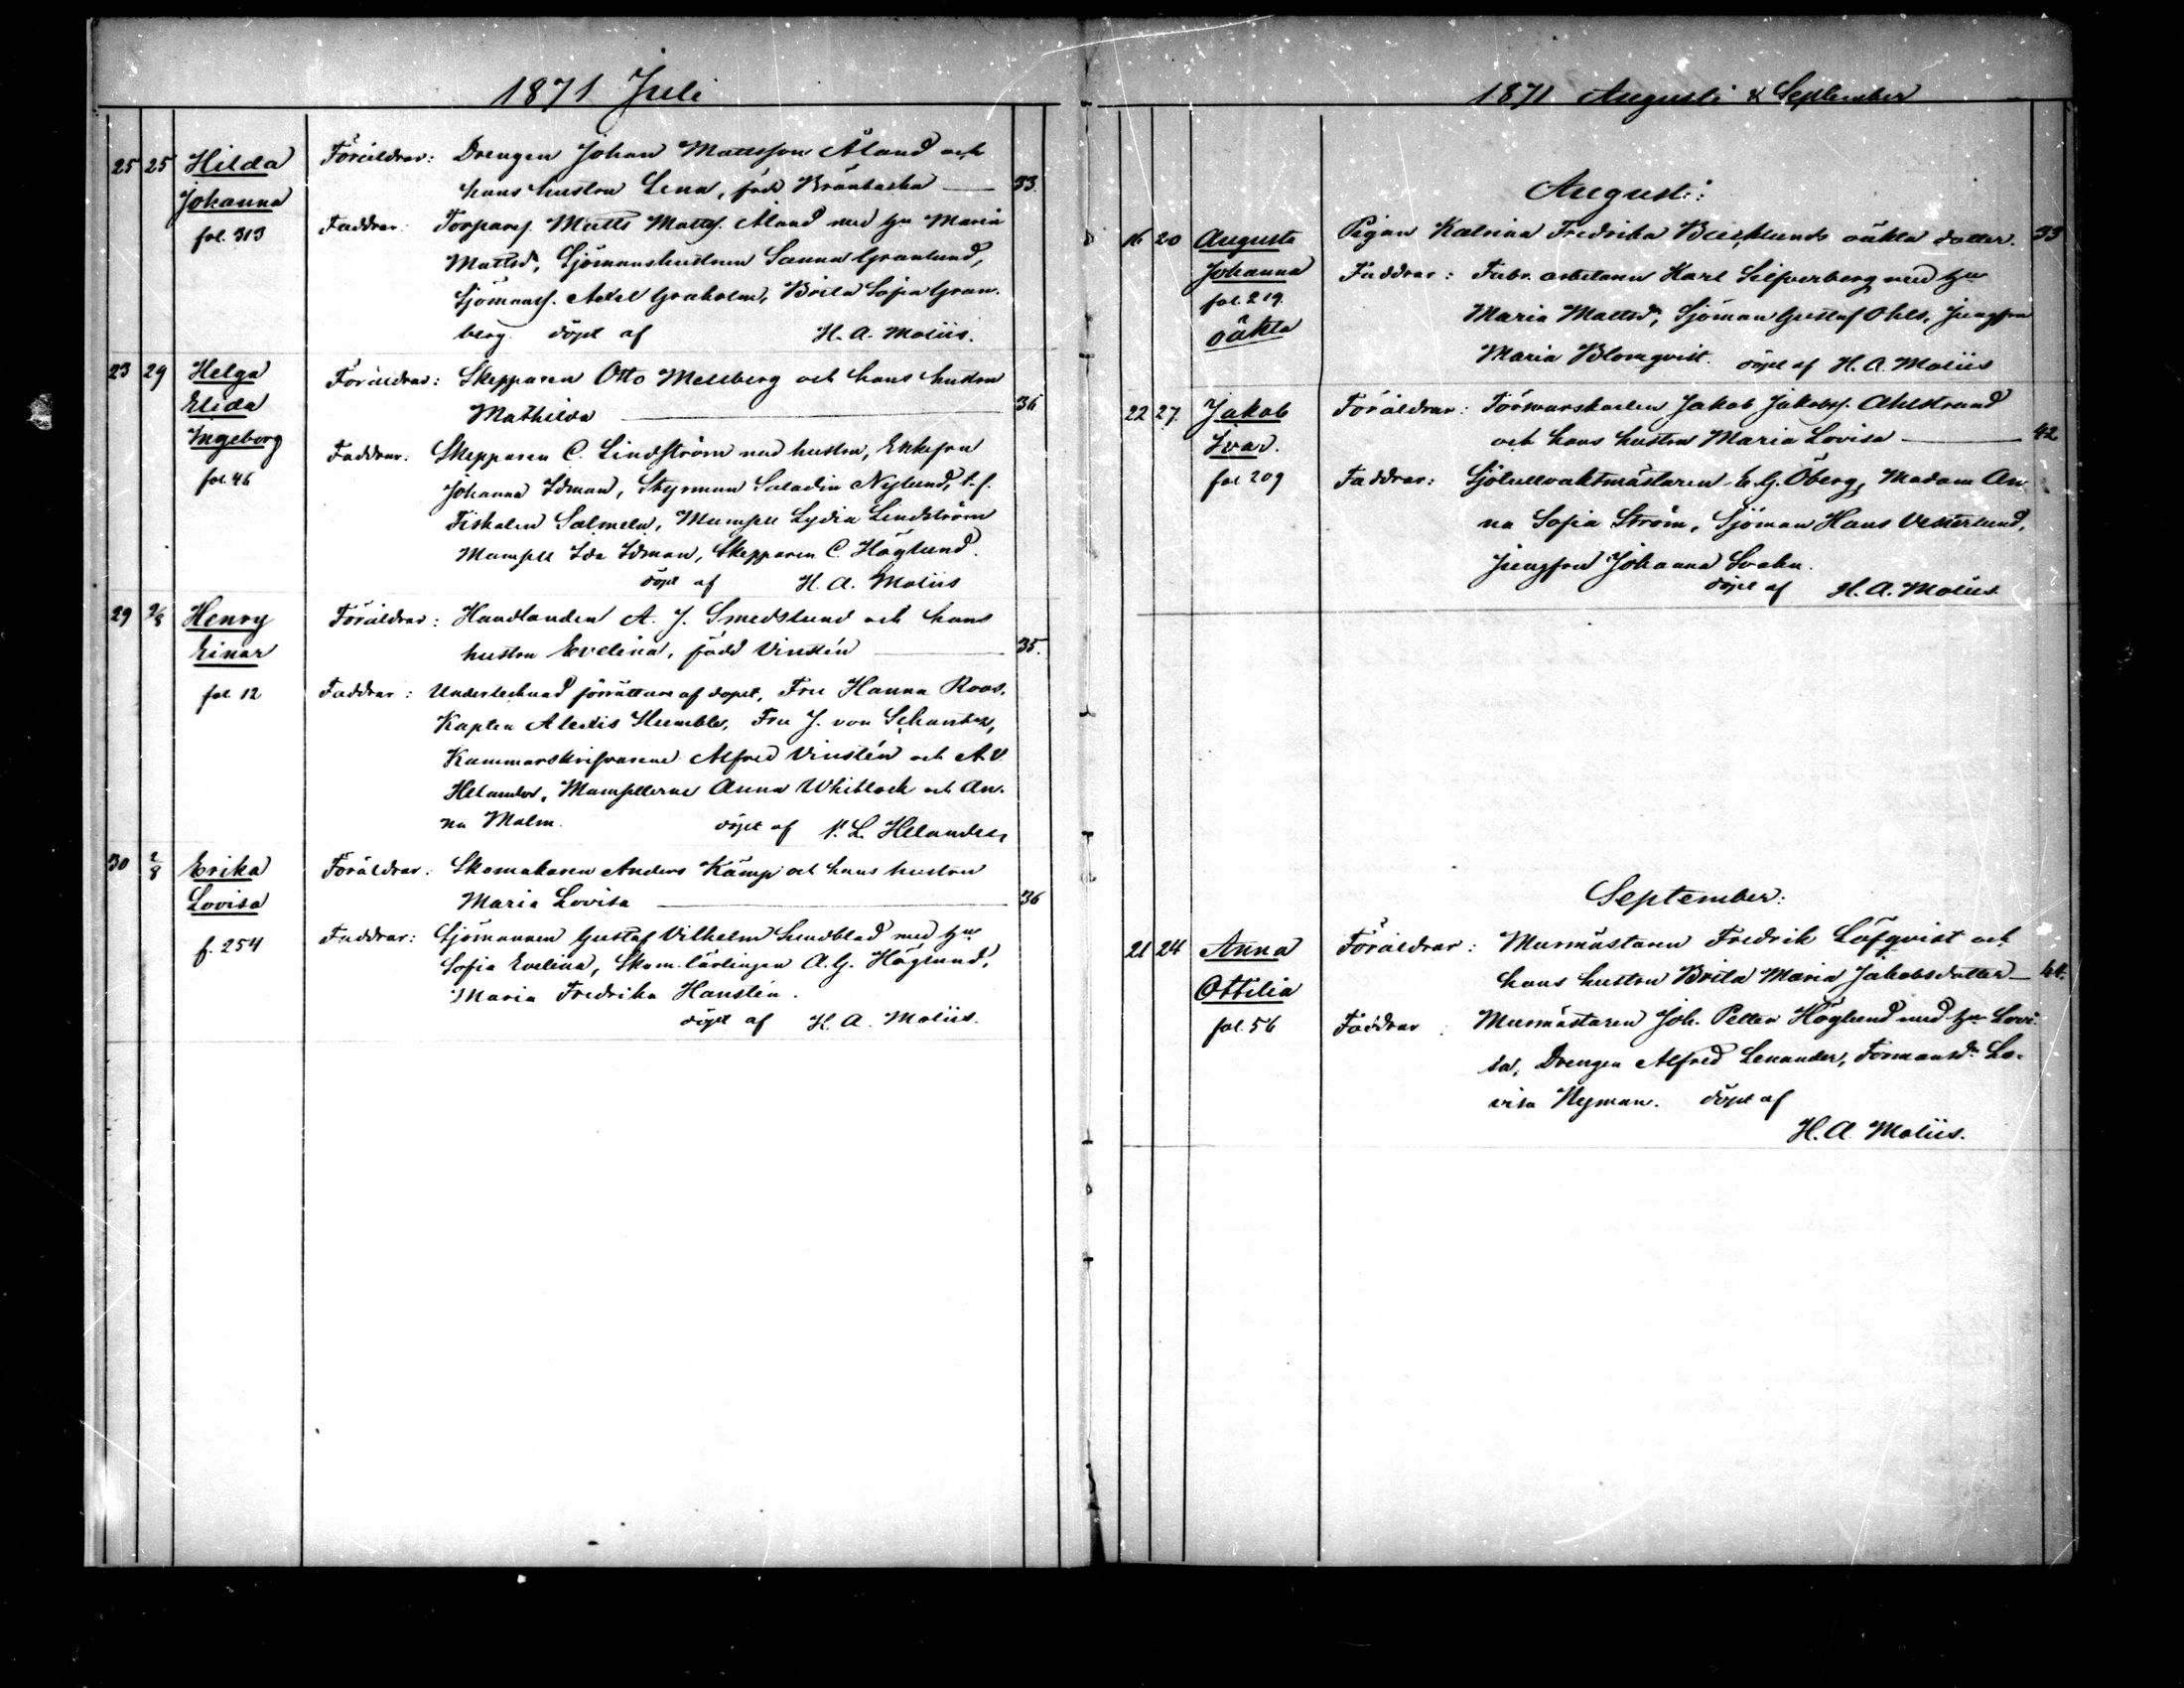 1871 Juli
25 25 Hilda Föräldrar: Drengen Johan Mattsson Åland och
Johanna hans hustru Lena, född Bränbacka 33.
fol. 313 Faddrar: Torpares. Matts Matts. Åland med hu Maria
Mattsdr, Sjömanshustrun Sanna Granlund,
Sjömans. Axel Graholm, Brita Sofia Gran-
berg. döpt af H. A. Moliis.
23 29 Helga Föräldrar: Skepparen Otto Mellberg och hans hustru
Elida Mathilda 36
Ingeborg Faddrar: Skepparen C. Lindström med hustru, Enkefru
fol. 46 Johanna Idman, Styrman Saladin Nylund, t.f.
Fiskalen Salmeln, Mamsell Lydia Lindström
Mamsell Ida Idman, Skepparen C. Höglund.
döpt af H. A. Moliis
29 9/8 Henry Föräldrar: Handlanden A. J. Smedslund och hans
Einar hustru Evelina, född Vinstén 35.
fol. 12 Faddrar: Undertecknad förrättare af dopet, Fru Hanna Roos,
Kapten Alexis Humble, Fru J. von Schantz,
Kammarskrifvarene Alfred Vinstén och A. V.
Helander, Mamsellerne Anna Whitlock och An-
na Malm. döpt af L. Helander
30 2/8 Erika Föräldrar: Skomakaren Anders Kämp och hans hustru
Lovisa Maria Lovisa 36
f. 254 Faddrar: Sjömannen Gustaf Vilhelm Sundblad med hu
Sofia Evelina, Skom. lärlingen A. G. Höglund,
Maria Fredrika Hanstén.
döpt af H. A. Moliis.
1871 Augusti & September
Augusti:
16 20 Augusta Pigan Katrina Fredrika Backlunds oäkta dotter. 33
Johanna Faddrar: Fabr. arbetaren Karl Silfverberg med hu
fol. 219. Maria Mattsdr, Sjöman Gustaf Ohls, Jungfru
oäkta Maria Blomqvist. döpt af H. A. Moliis
22 27 Jakob Föräldrar: Försvarskarlen Jakob Jakobs. Ahlstrand
Ivar. och hans hustru Maria Lovisa 42
fol 209 Faddrar: Sjötullvaktmästaren E. G. Öberg, Madam An-
na Sofia Ström, Sjöman Hans Vesterlund,
Jungfru Johanna Svahn.
döpt af H. A. Moliis
September:
21 24 Anna Föräldrar: Murmästaren Fredrik Löfqvist och
Ottilia hans hustru Brita Maria Jakobsdotter 44.
fol. 56 Faddrar: Murmästaren Joh. Petter Höglund med hu Lovi-
sa, Drengen Alfred Lenander, Formansdr Lo-
visa Nyman. döpt af
H. A. Moliis.